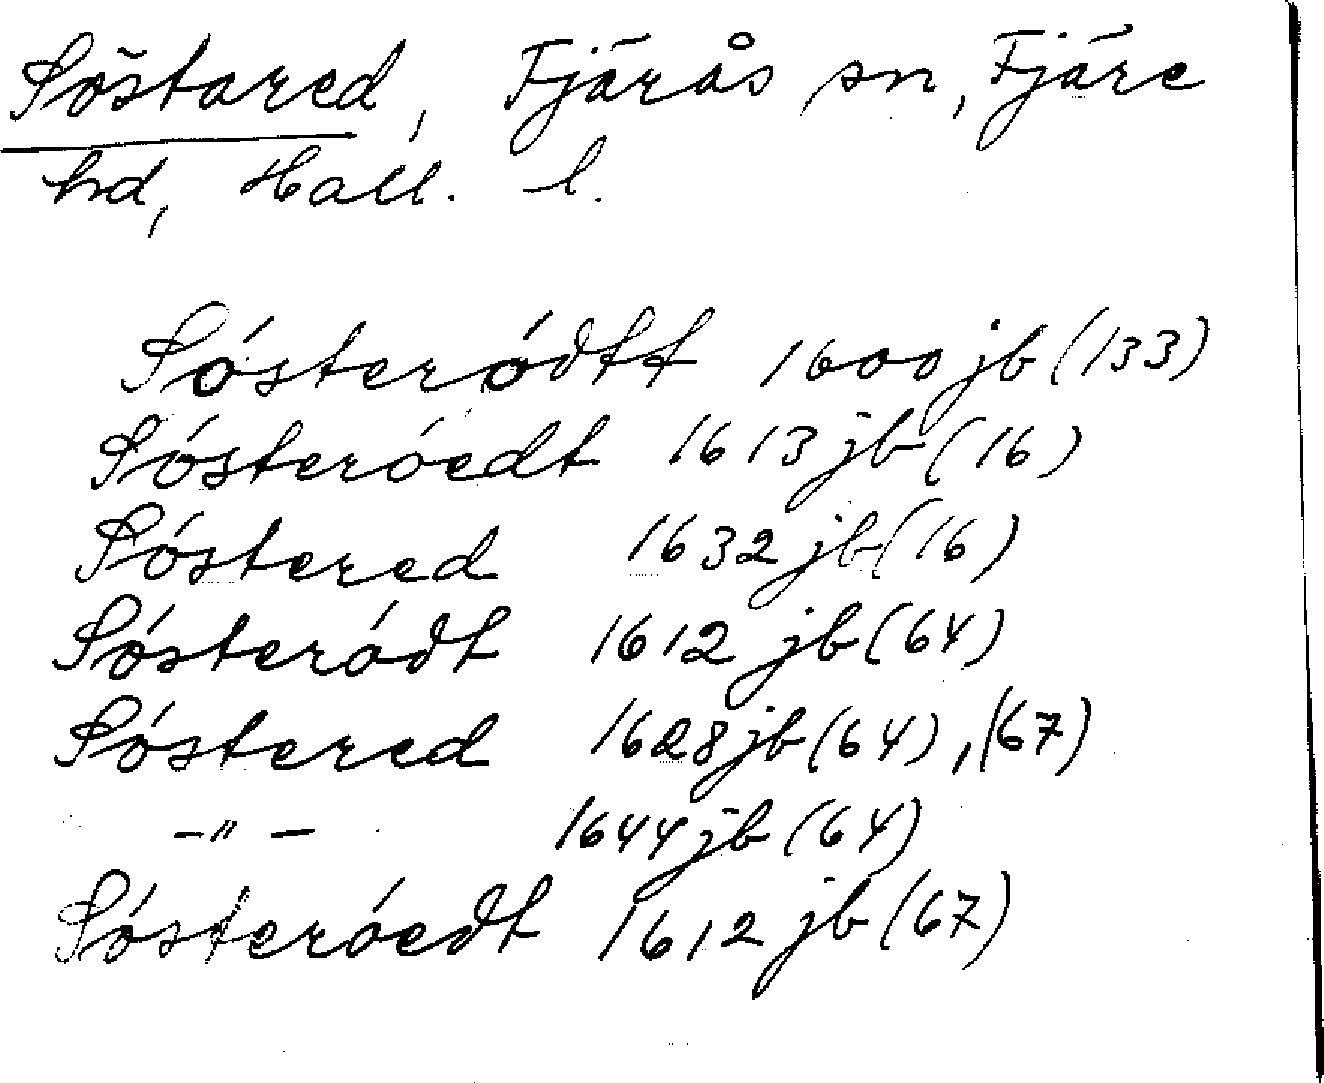 Söstared, Fjärås sn, Fjäre
hd, Hall. l.
Sósteródtt 1600 jb (133)
Sósteróedt 1613 jb (16)
Söstered 1632 jb (16)
Sósteródt 1612 jb (64)
Sóstered 1628 jb (64), (67)
-"- 1644 jb (64)
Sósteróedt 1612 jb (67)